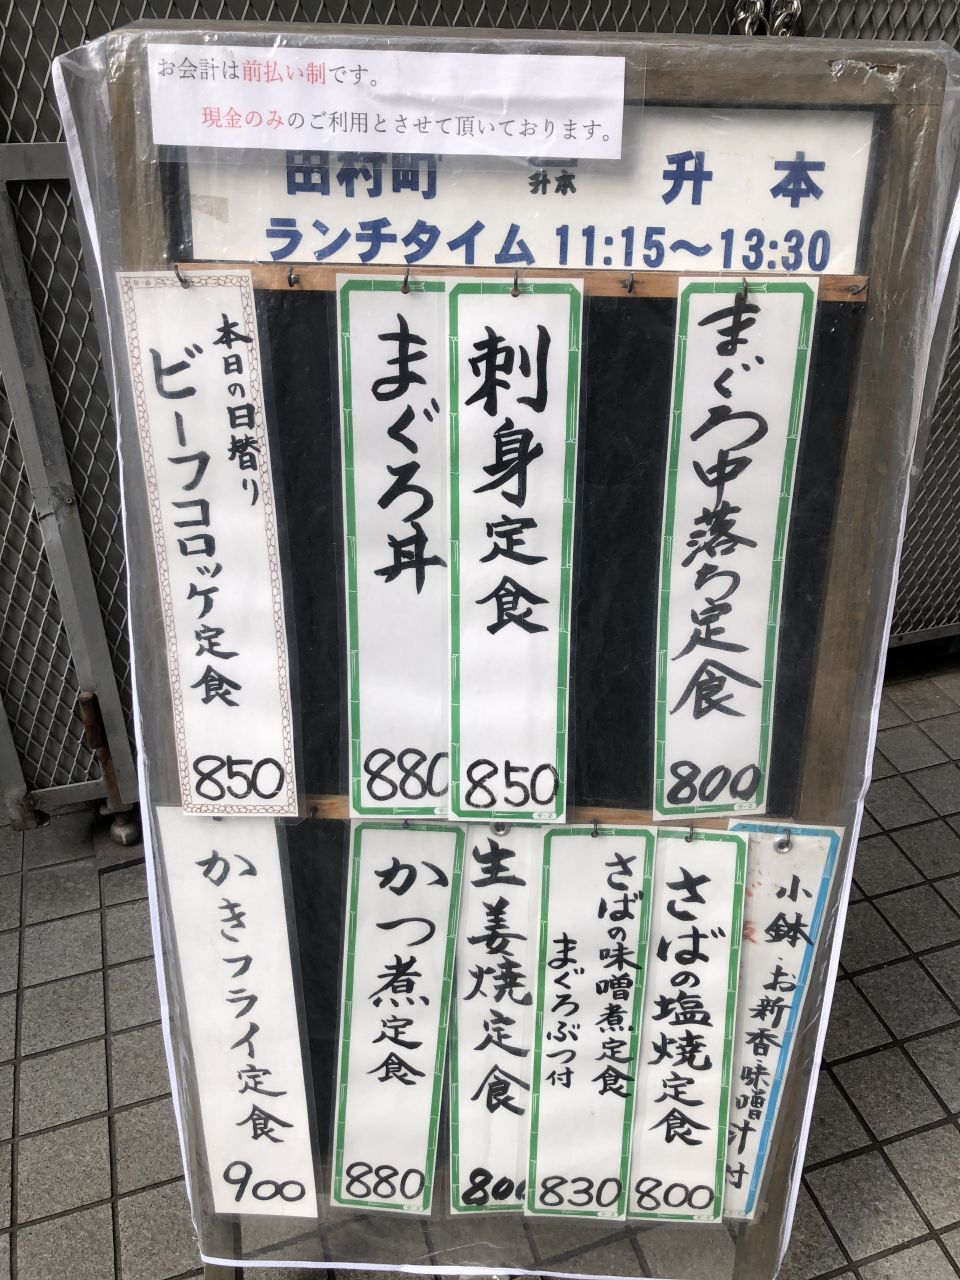 お会計は前払い制です。
現金のみのご利用とさせて頂いております。
田村町 升本 升本
ランチタイム 11:15～13:30
まぐろ中落ち定食
800
刺身定食
850
まぐろ丼
880
本日の日替り
ビーフコロッケ定食
850
小鉢・お新香・味噌汁付
さばの塩焼定食
800
さばの味噌煮定食
まぐろぶつ付
830
生姜焼定食
800
かつ煮定食
880
かきフライ定食
900